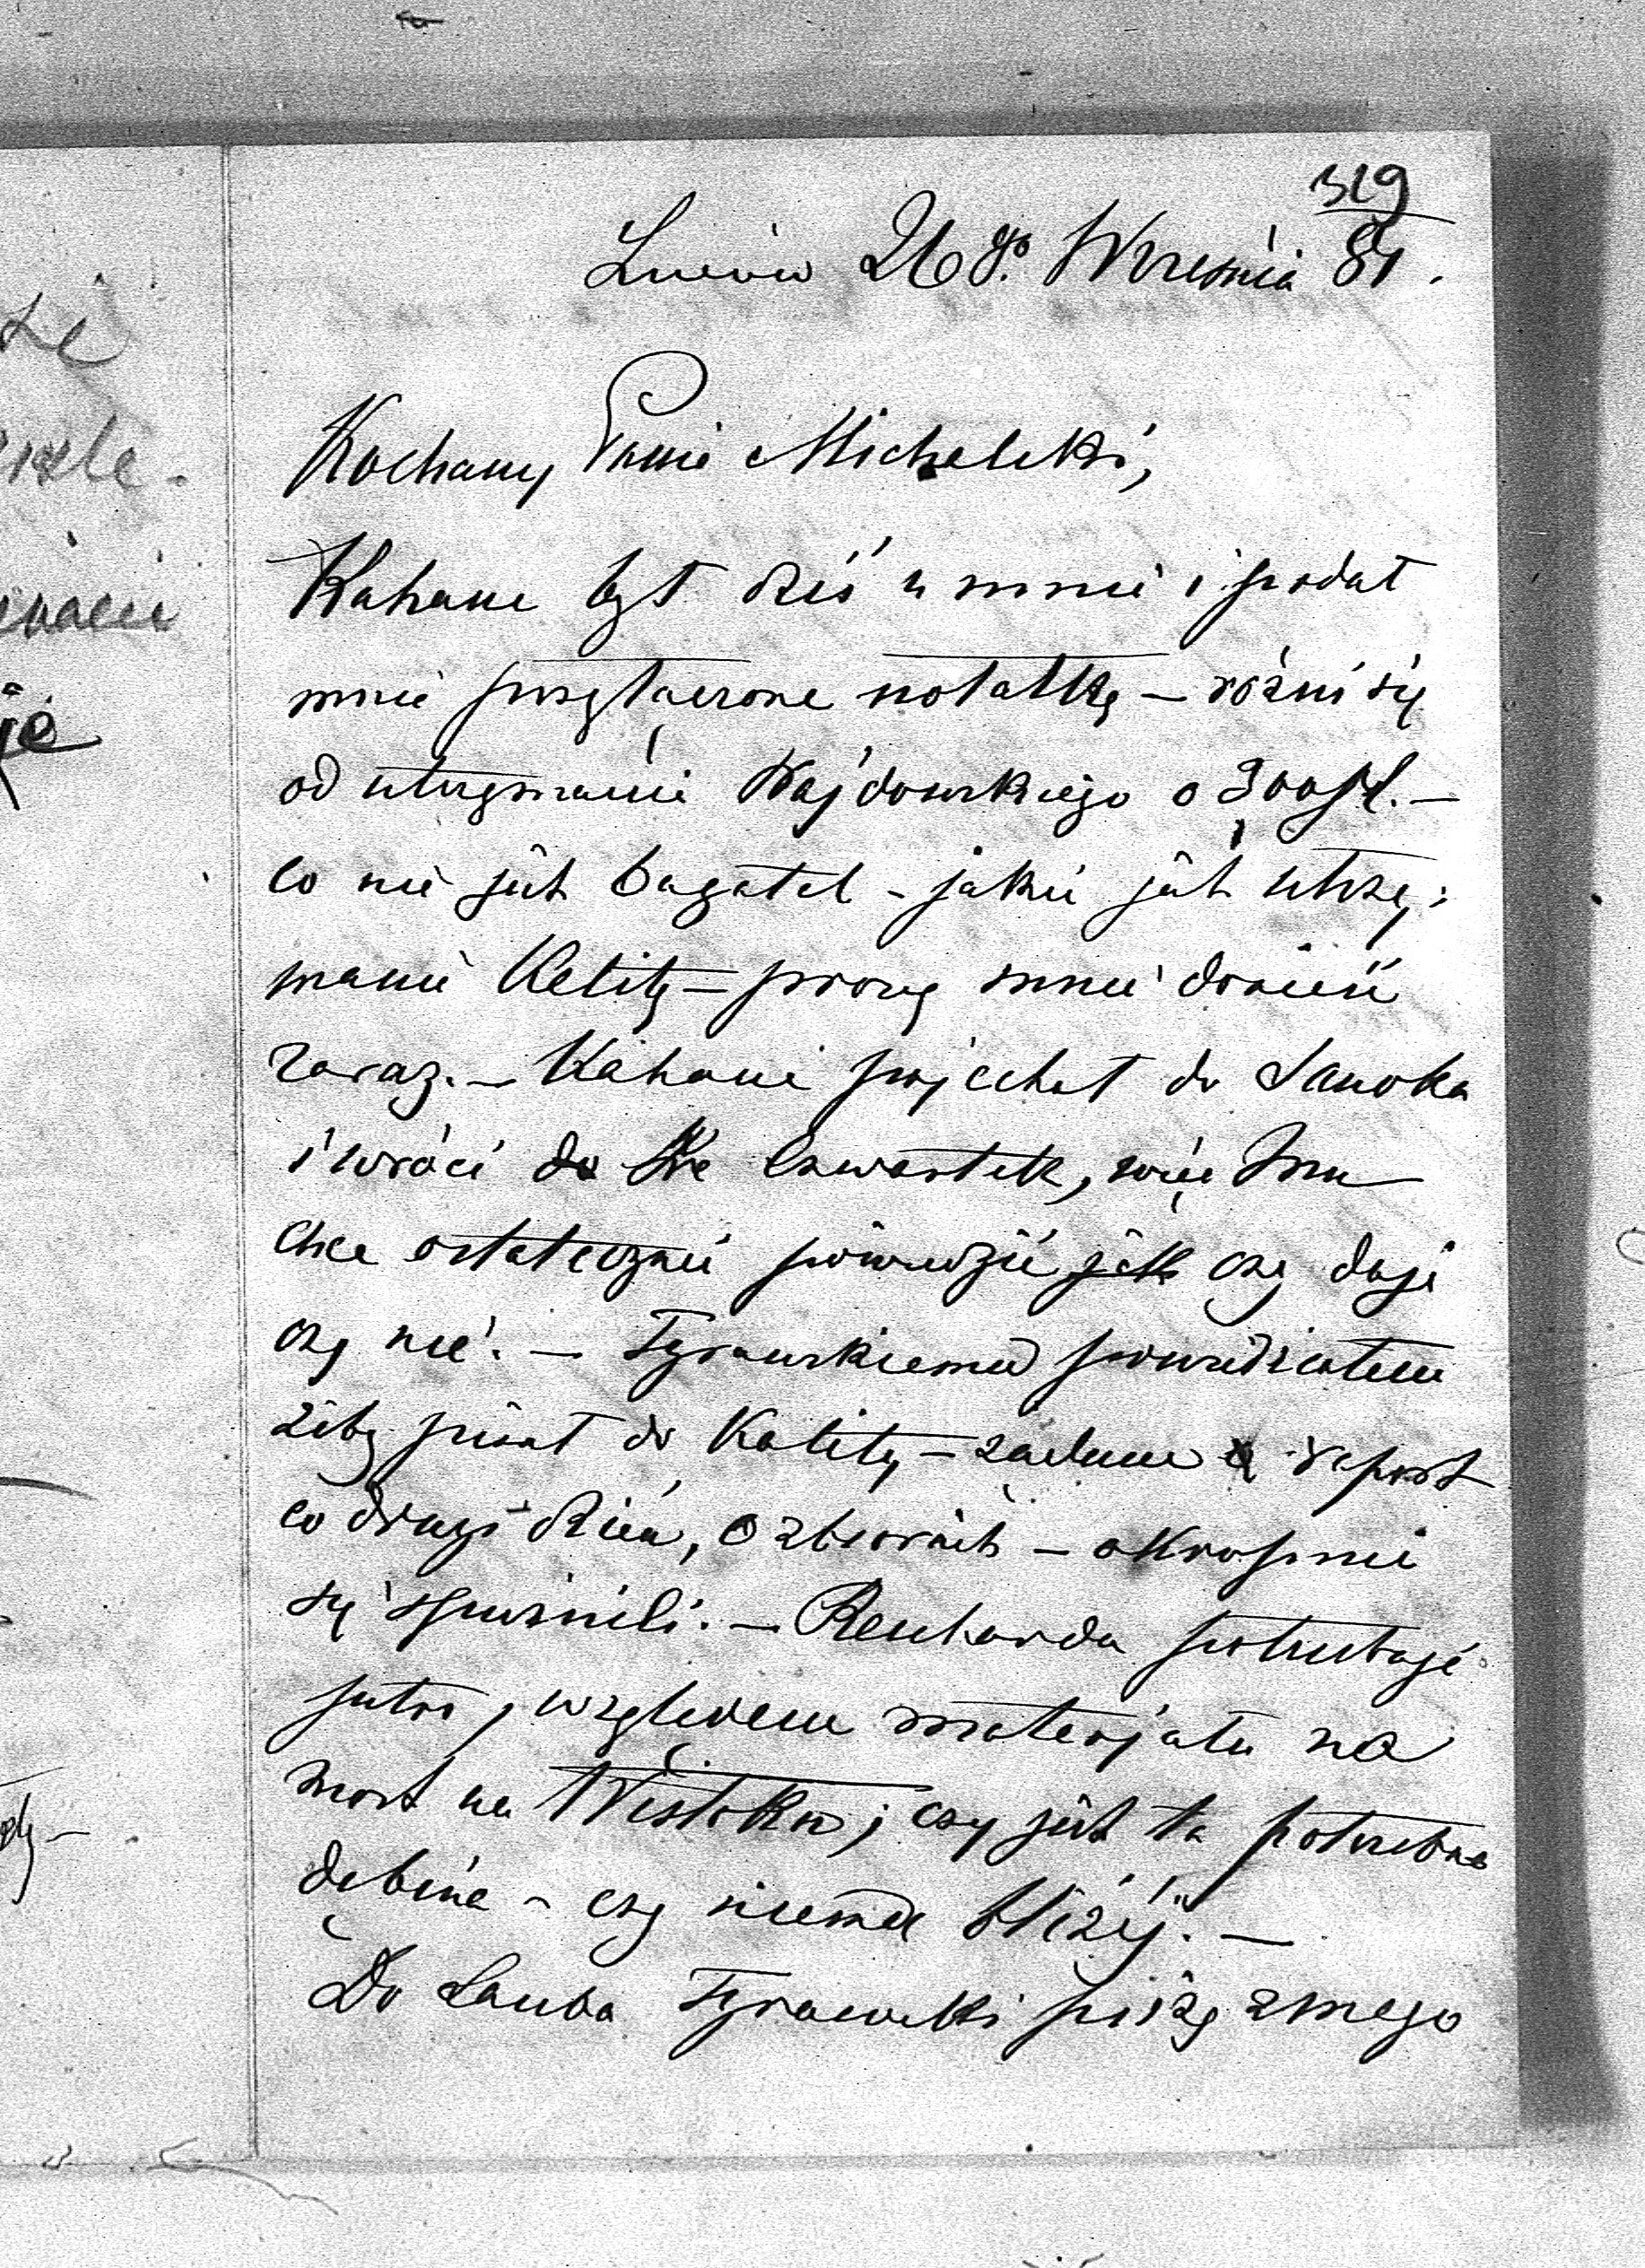 319
Lwów 26go Wresnia 81.
Kochany Panie Michalski,
Kahane był dziś u mnie i podał
mnie przyłaczone notatkę – różni się
od utrzymania Wajdowskiego o 300 fl. –
co nie jest bagatel – jakie jest utrzy:
manie Kality – proszę mnie donieść
zaraz. – Kahane pojechał do Sanoka
i wróci we Czwartek, więc Jmu
chce ostatecznie powiedzieć jak czy daję
czy nie. – Tyrawskiemu powiedziałem
żeby pisał do Kality – żadam raport
co drugi dzień, o zbiorach – okropnie
się spuźnili. – Rencharda potrzebuje
jutro, względem materjału na
most na Wisłoku; czy jest ta potrzebna
dębina – czy niema bliżéj. –
Do Lauba Tyrawski piszę z mego